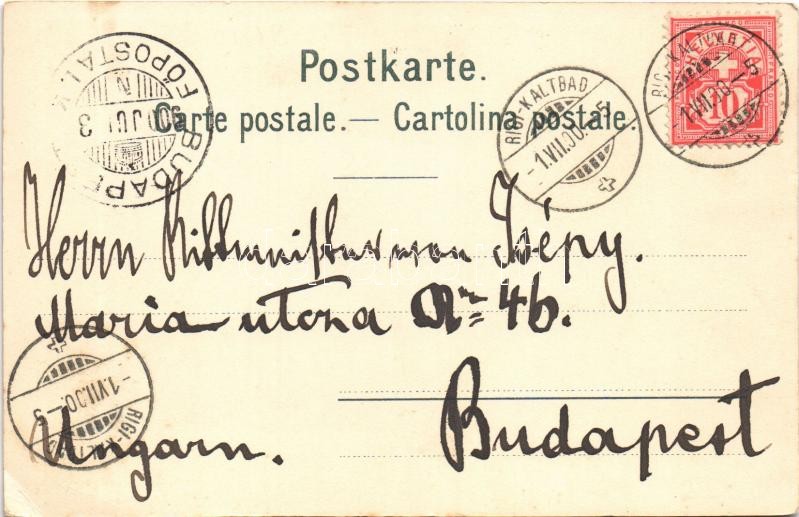 Postkarte.
Carte postale. — Cartolina postale.
BUDAPEST FŐPOSTA
N
JUL 3
RIGI-KALTBAD
-1.VII.00.-5
RIGI-KALTBAD
1.VII.00-5
HELVETIA
10
Herrn Rittmeister von Szépy.
Maria utcza No 46.
Budapest
Ungarn.
RIGI-KALTBAD
-1.VII.00.-5